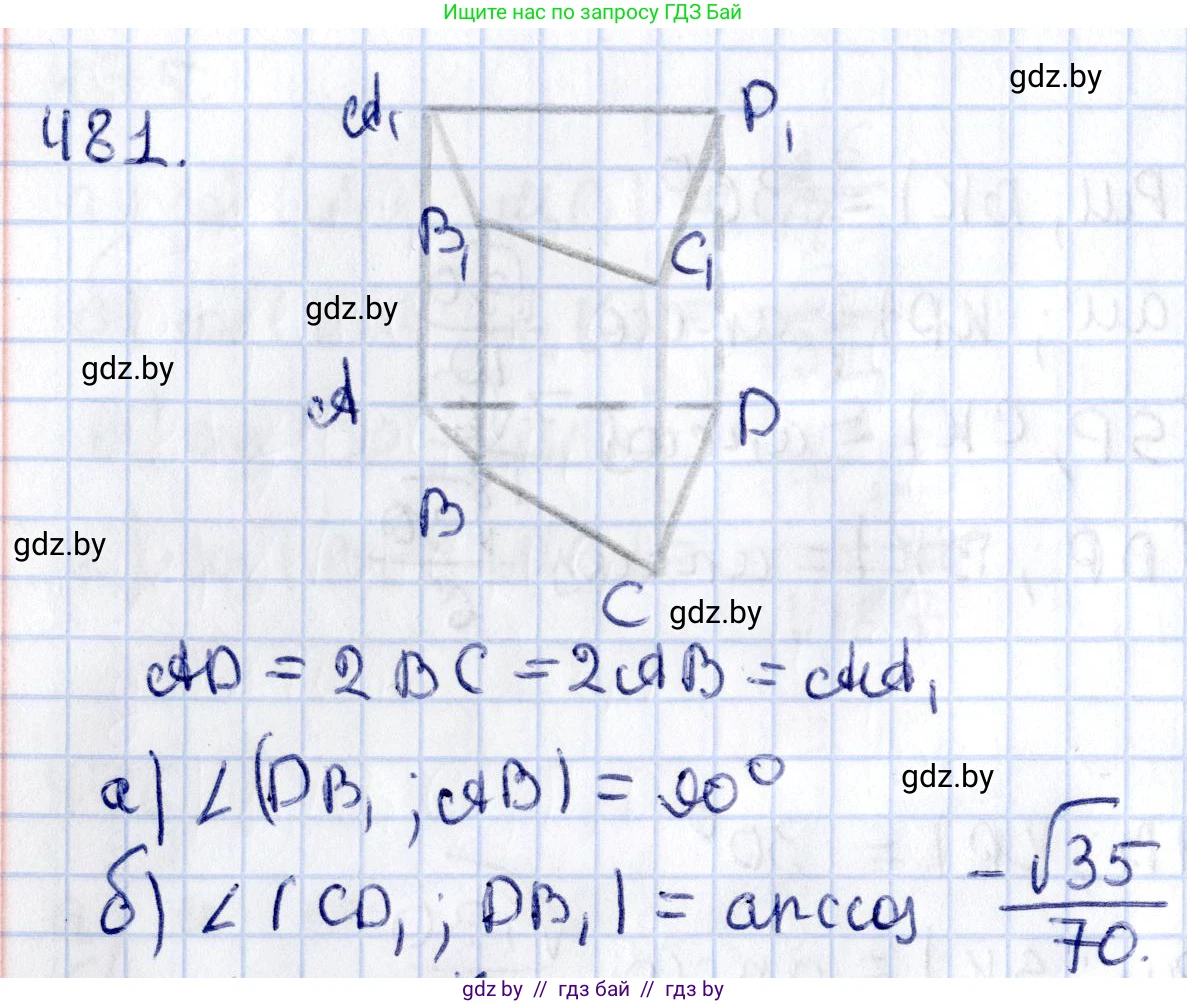 Ищите нас по запросу ГДЗ Бай
gdz.by
481.
A₁
D₁
B₁
C₁
gdz.by
gdz.by
A
D
B
gdz.by
C
gdz.by
AD = 2BC = 2AB = AA₁
а) ∠(DB₁; AB) = 90°
gdz.by
б) ∠(CD₁; DB₁) = arccos -√35/70.
gdz.by // гдз бай // гдз by